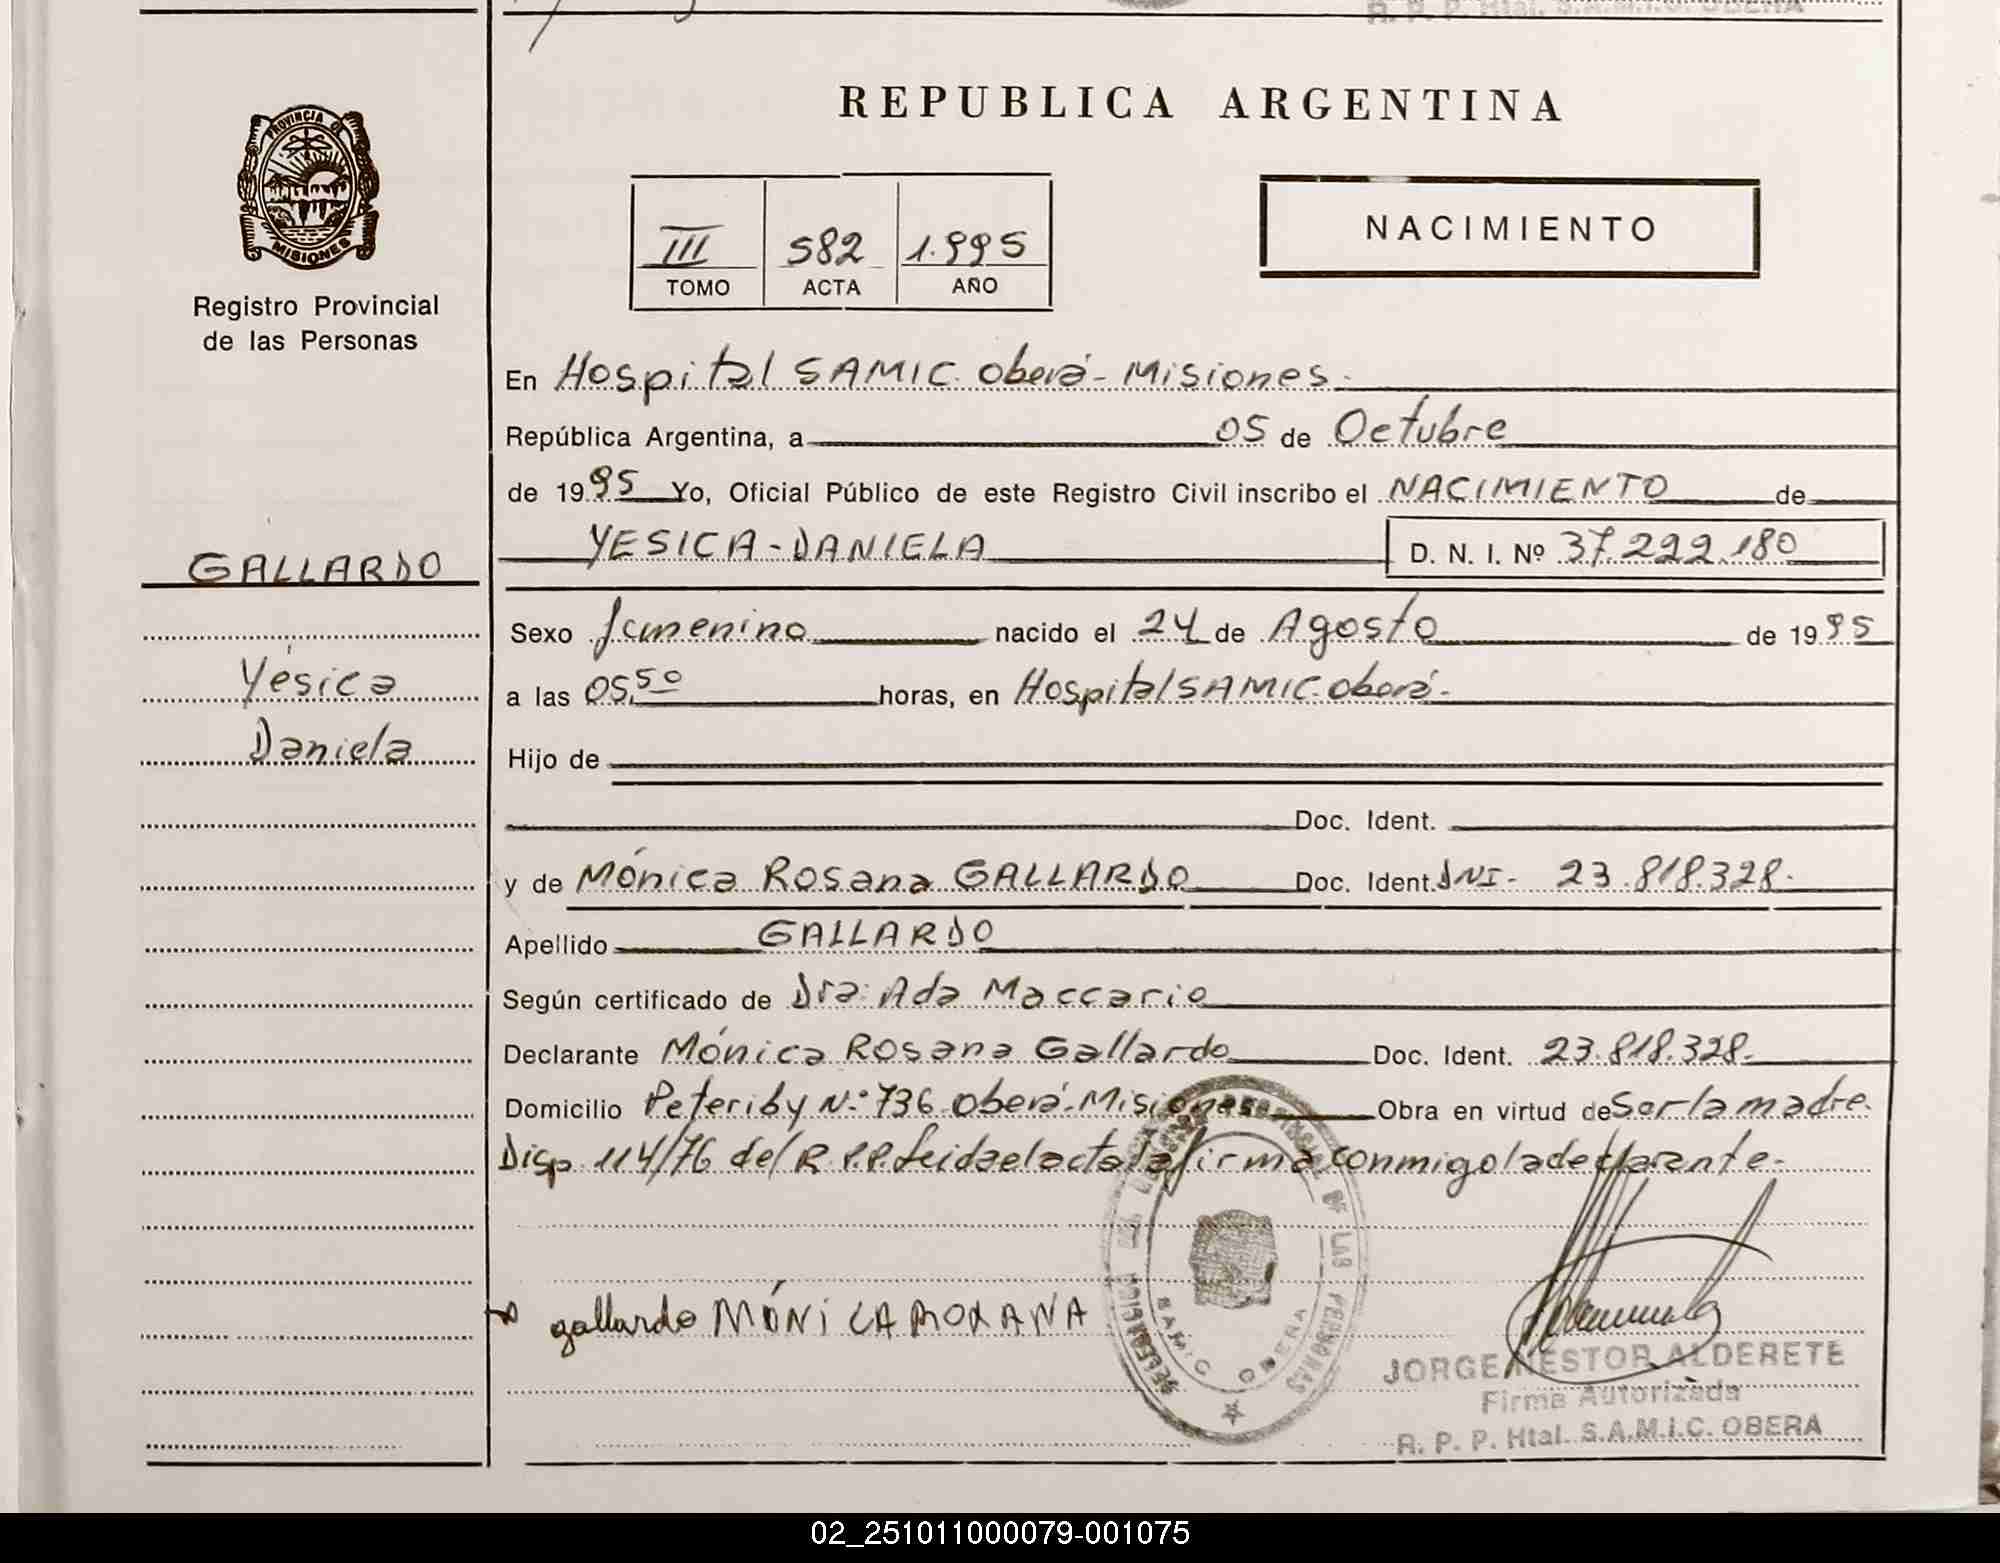 R. P. P. Htal. S.A.M.I.C. OBERA
PROVINCIA DE
MISIONES
Registro Provincial
de las Personas
GALLARDO
Yésica
Daniela
REPUBLICA ARGENTINA
III 582 1.995
TOMO ACTA AÑO
NACIMIENTO
En Hospital SAMIC. Oberá - Misiones.
República Argentina, a 05 de Octubre
de 1995 Yo, Oficial Público de este Registro Civil inscribo el NACIMIENTO de
YESICA - DANIELA D. N. I. Nº 37.222.180
Sexo femenino nacido el 24 de Agosto de 1995
a las 05,50 horas, en Hospital SAMIC. Oberá-
Hijo de
Doc. Ident.
y de Mónica Rosana GALLARDO Doc. Ident. DNI- 23.818.328.
Apellido GALLARDO
Según certificado de Dra: Ada Maccario
Declarante Mónica Rosana Gallardo Doc. Ident. 23.818.328.
Domicilio Peteriby N.º 736. Oberá-Misiones Obra en virtud de Ser la madre.
Disp. 114/76 del R.P.P. Leida el acta la firma conmigo la declarante.
gallardo MÓNiCA ROXANA
DE LAS PERSONAS
SAMIC OBERA
JORGE NESTOR ALDERETE
Firma Autorizada
R. P. P. Htal. S.A.M.I.C. OBERA
02_251011000079-001075